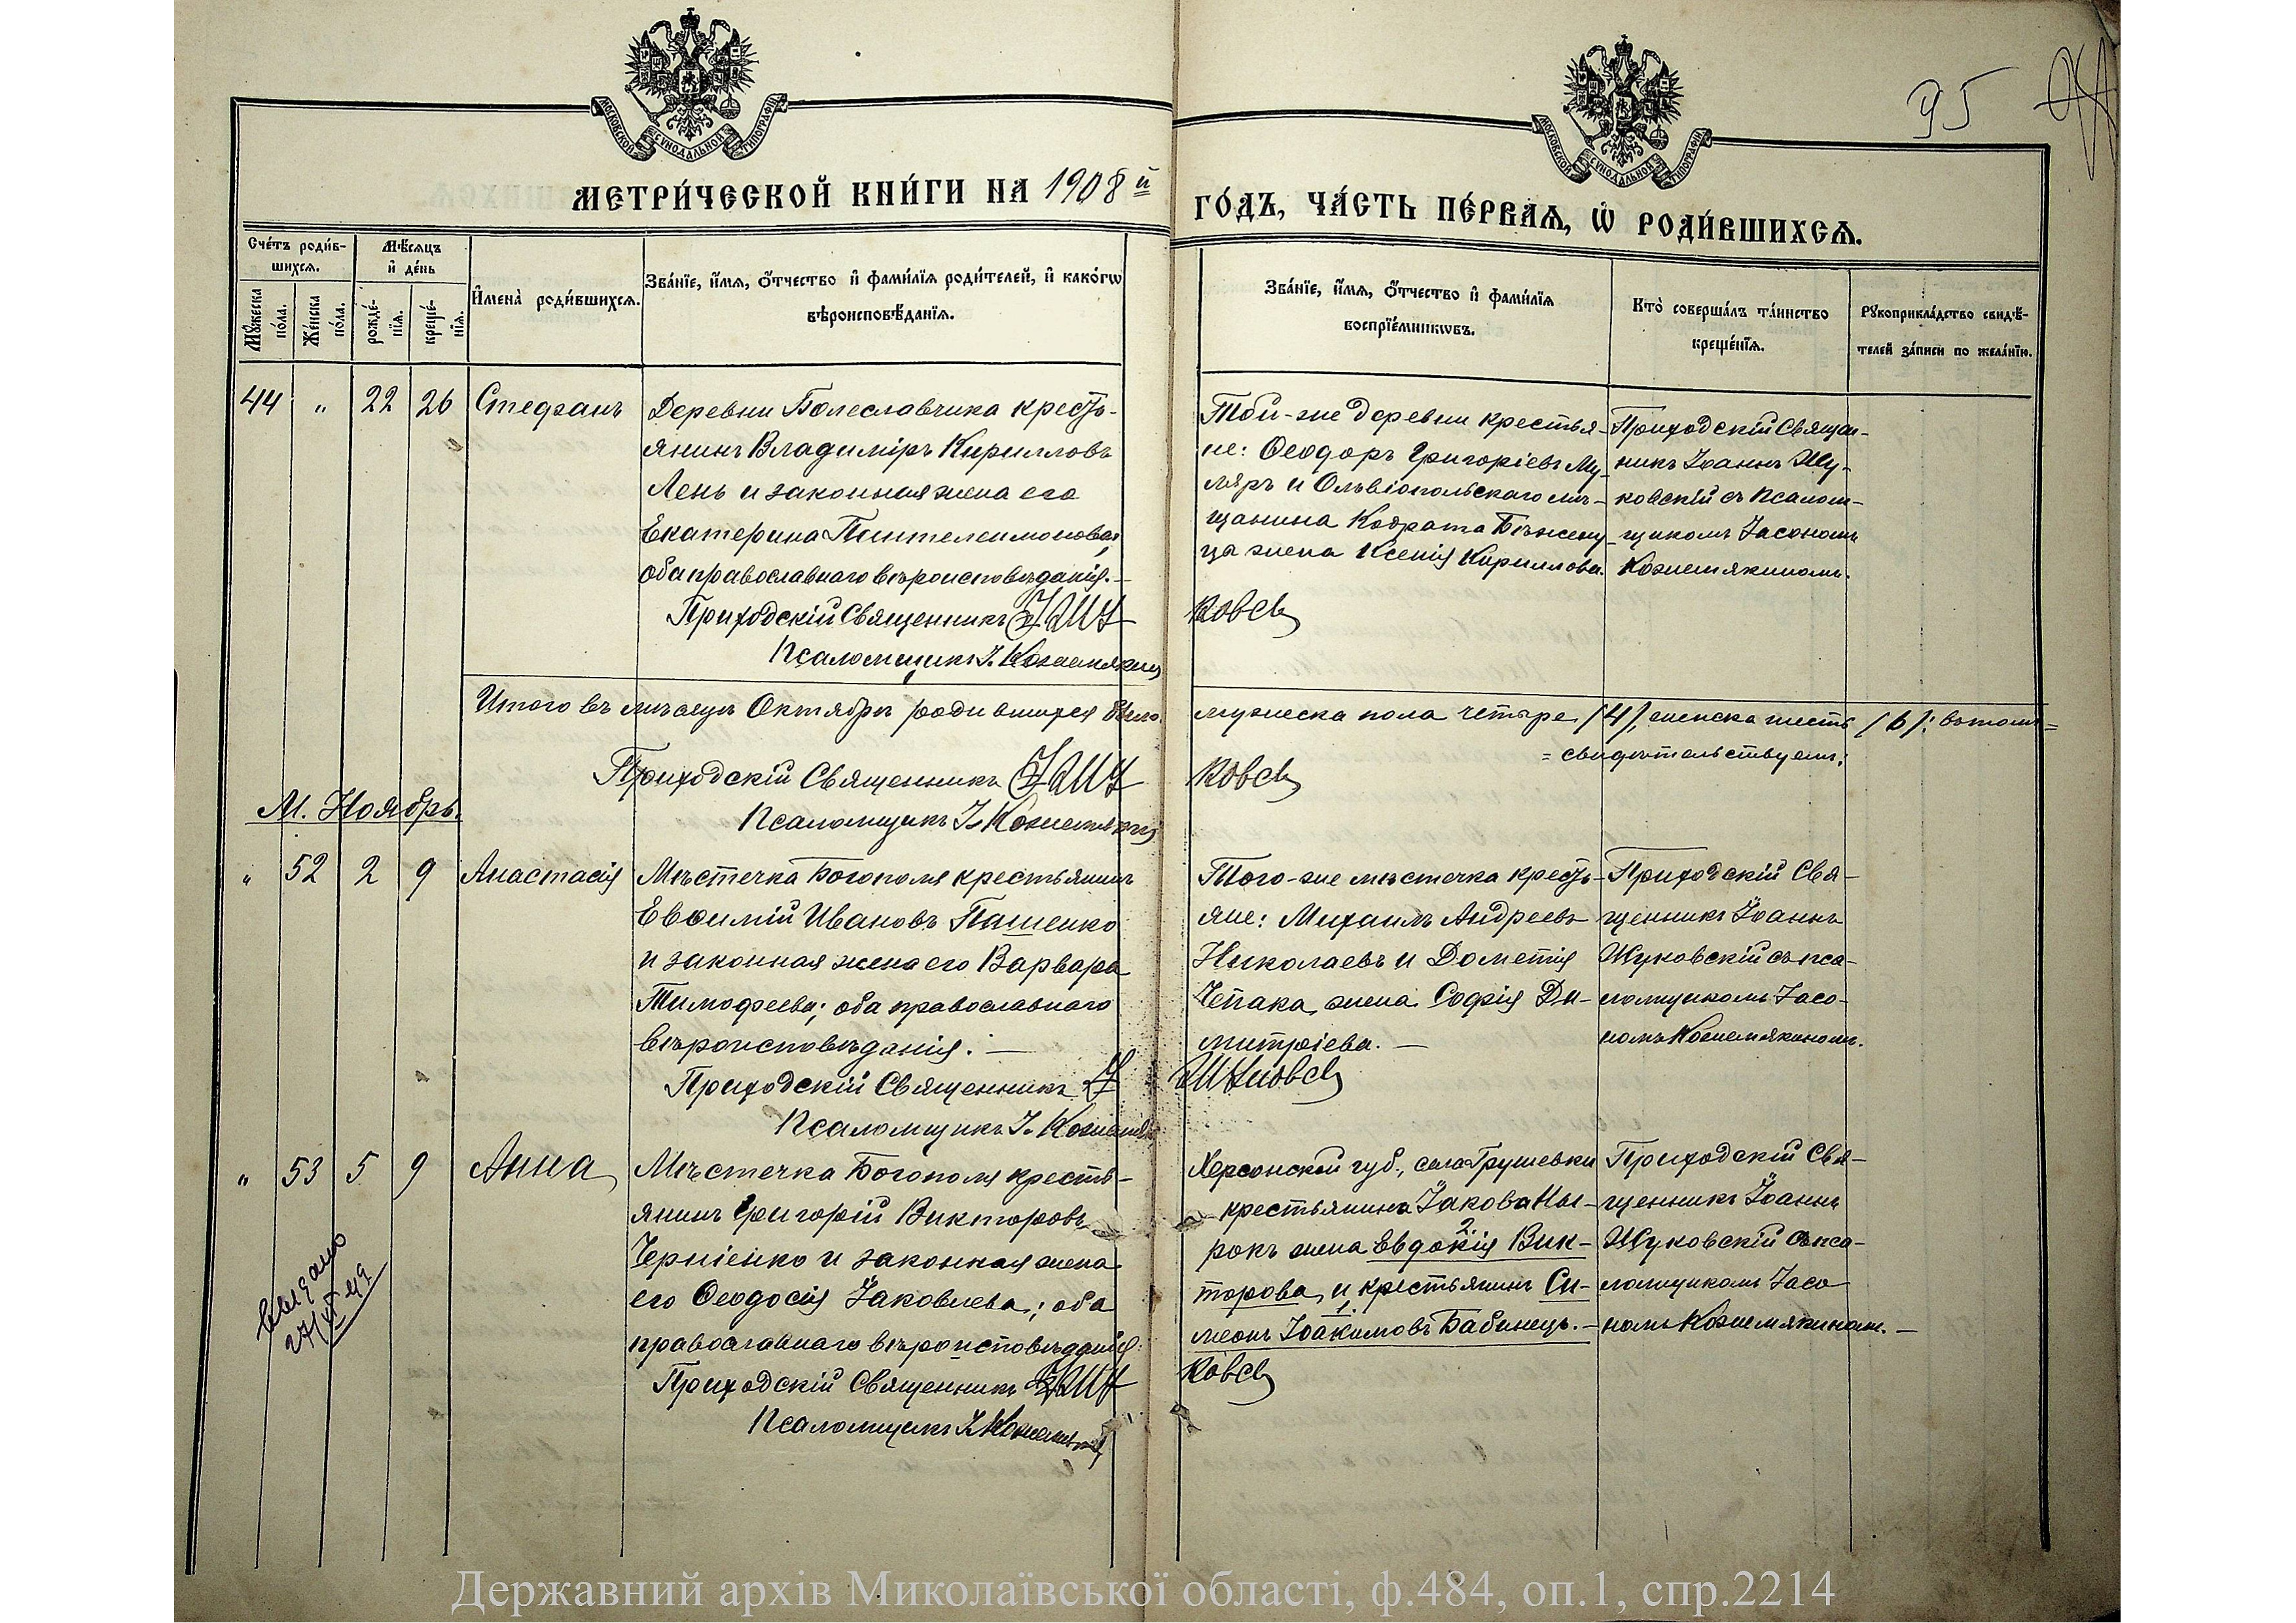 МОСКОВСКОЙ СѴНОДАЛЬНОЙ ТИПОГРАФІИ
МОСКОВСКОЙ СѴНОДАЛЬНОЙ ТИПОГРАФІИ
95
МЕТРИ́ЧЕСКОЙ КНИ́ГИ НА 1908й
ГО́ДЪ, ЧА́СТЬ ПЕ́РВАѦ, Ѡ҆ РОДИ́ВШИХСѦ.
Сче́тъ роди́в-
шихсѧ.
Мѣ́сѧцъ
и҆ де́нь
Мꙋ́жеска
по́ла.
Же́нска
по́ла.
рожде́-
нїѧ.
креще́-
нїѧ.
И҆мена̀ роди́вшихсѧ.
Зва́нїе, и҆́мѧ, ѻ҆́тчество и҆ фами́лїѧ роди́телей, и҆ како́гѡ
вѣроисповѣ́данїѧ.
Зва́нїе, и҆́мѧ, ѻ҆́тчество и҆ фами́лїѧ
воспрїе́мникѡвъ.
Кто̀ соверша́лъ та́инство
креще́нїѧ.
Рꙋкоприкла́дство свидѣ́-
телей за́писи по жела́нїю.
44 " 22 26 Стефанъ
Деревни Болеславчика кресть-
янинъ Владиміръ Кирилловъ
Лень и законная жена его
Екатерина Пантелеимонова,
оба православнаго вѣроисповѣданія.-
Приходскій Священникъ І. Жу
Псаломщикъ І. Кожемякин
Той-же деревни крестья-
не: Ѳеодоръ Григоріевъ Му-
ляръ и Ольвіопольскаго мѣ-
щанина Кодрата Бѣжени-
ца жена Ксенія Кириллова.
ковск
Приходскій Священ-
никъ Іоаннъ Жу-
ковскій съ псалом-
щикомъ Іасономъ
Кожемякиномъ.
Итого въ мѣсяцѣ Октябрѣ родившихся было
мужеска пола четыре (4), женска шесть (6); въ томъ=
=свидѣтельствуемъ:
Приходскій Священникъ І. Жу
ковск
Псаломщикъ І. Кожемякин
М. Ноябрь.
" 52 2 9 Анастасія
Мѣстечка Богополя крестьянинъ
Евѳимій Ивановъ Пашенко
и законная жена его Варвара
Тимофеева; оба православнаго
вѣроисповѣданія. —
Приходскій Священникъ І.
Псаломщикъ І. Кожемя
Того-же мѣстечка кресть-
яне: Михаилъ Андреевъ
Николаевъ и Дометія
Чепака жена Софія Ди-
митріева. —
Жуковск
Приходскій Свя-
щенникъ Іоаннъ
Жуковскій съ пса-
ломщикомъ Іасо-
номъ Кожемякиномъ.
" 53 5 9 Анна
Мѣстечка Богополя кресть-
янинъ Григорій Викторовъ
Черніенко и законная жена
его Ѳеодосія Іаковлева; оба
православнаго вѣроисповѣданія.
Приходскій Священникъ І. Жу
Псаломщикъ І. Кожемяк
Выдано
Херсонской губ., села Грушевки
крестьянина Іакова Цы-
рокъ жена Евдокія Вик-
2.
торова и крестьянинъ Си-
1.
меонъ Іоакимовъ Бабинецъ.-
ковск
Приходскій Свя-
щенникъ Іоаннъ
Жуковскій съ пса-
ломщикомъ Іасо
номъ Кожемякином. —
Державний архів Миколаївської області, ф.484, оп.1, спр.2214